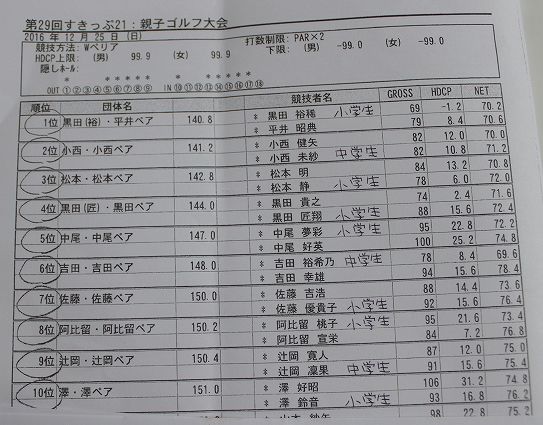 第29回すきっぷ21：親子ゴルフ大会
2016 年 12 月 25 日 (日)
競技方法：Wペリア 打数制限：PAR×2
HDCP上限：(男) 99.9 (女) 99.9 下限：(男) -99.0 (女) -99.0
隠しホール：
OUT ①②③④⑤⑥⑦⑧⑨ IN ⑩⑪⑫⑬⑭⑮⑯⑰⑱
順位 団体名 競技者名 GROSS HDCP NET
1位 黒田(裕)・平井ペア 140.8 * 黒田 裕稀 小学生 69 -1.2 70.2
* 平井 昭典 79 8.4 70.6
2位 小西・小西ペア 141.2 * 小西 健矢 82 12.0 70.0
* 小西 未紗 中学生 82 10.8 71.2
3位 松本・松本ペア 142.8 * 松本 明 84 13.2 70.8
* 松本 静 小学生 78 6.0 72.0
4位 黒田(匠)・黒田ペア 144.0 * 黒田 貴之 74 2.4 71.6
* 黒田 匠翔 小学生 88 15.6 72.4
5位 中尾・中尾ペア 147.0 * 中尾 夢彩 小学生 95 22.8 72.2
* 中尾 好英 100 25.2 74.8
6位 吉田・吉田ペア 148.0 * 吉田 裕希乃 中学生 78 8.4 69.6
* 吉田 幸雄 94 15.6 78.4
7位 佐藤・佐藤ペア 150.0 * 佐藤 吉浩 88 14.4 73.6
* 佐藤 優貴子 小学生 92 15.6 76.4
8位 阿比留・阿比留ペア 150.2 * 阿比留 桃子 小学生 95 21.6 73.4
* 阿比留 宣栄 84 7.2 76.8
9位 辻岡・辻岡ペア 150.4 * 辻岡 寛人 87 12.0 75.0
* 辻岡 凜果 中学生 91 15.6 75.4
10位 澤・澤ペア 151.0 * 澤 好昭 106 31.2 74.8
* 澤 鈴音 小学生 93 16.8 76.2
98 22.8 75.2